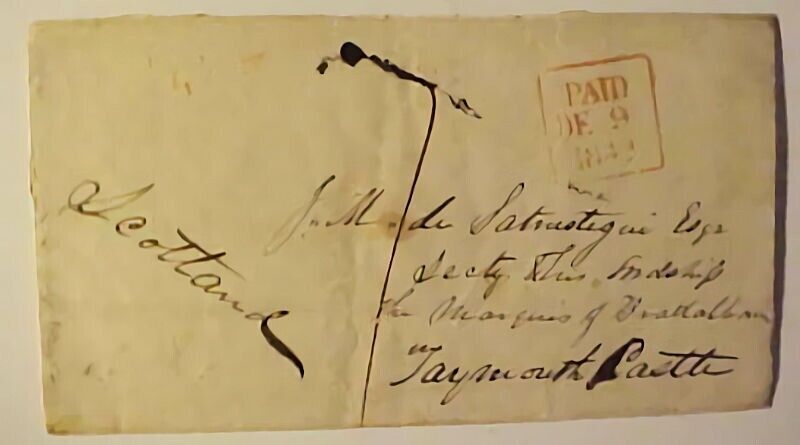 PAID
DE 9
J. M. de Satrustegui Esqr
Secty his Lordship
The Marquis of
Taymouth Castle
Scotland